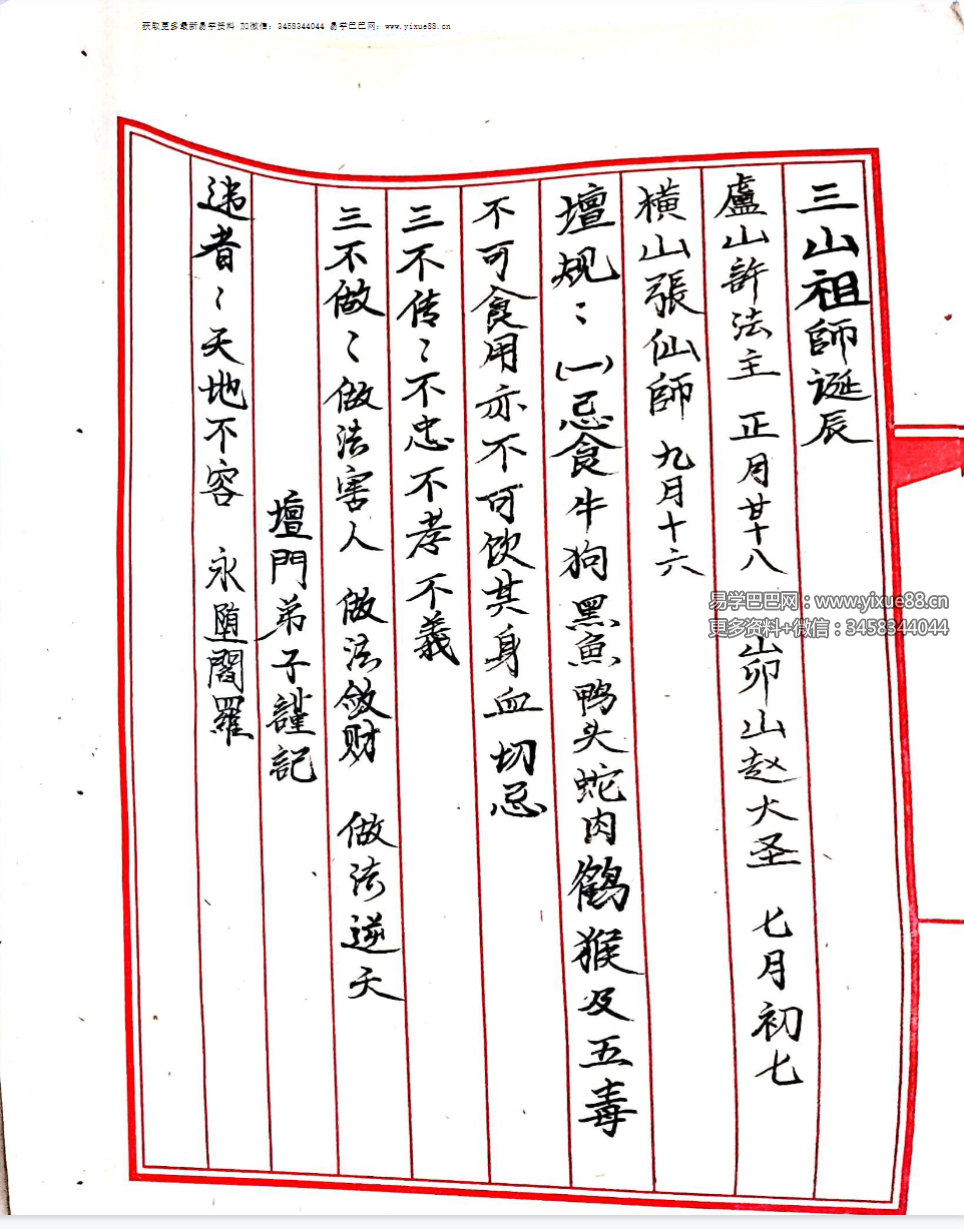 获取更多最新易学资料 加微信：3458344044 易学巴巴网：www.yixue88.cn
三山祖師誕辰
盧山許法主 正月廿十八 山茆山赵大圣 七月初七
横山張仙師 九月十六
壇规：(一)忌食牛狗黑魚鸭头蛇肉鹤猴及五毒
不可食用亦不可饮其身血切忌
三不传：不忠不孝不義
三不做：做法害人 做法敛财 做法逆天
壇門弟子謹記
违者：天地不容 永堕閻羅
易学巴巴网：www.yixue88.cn
更多资料+微信：3458344044